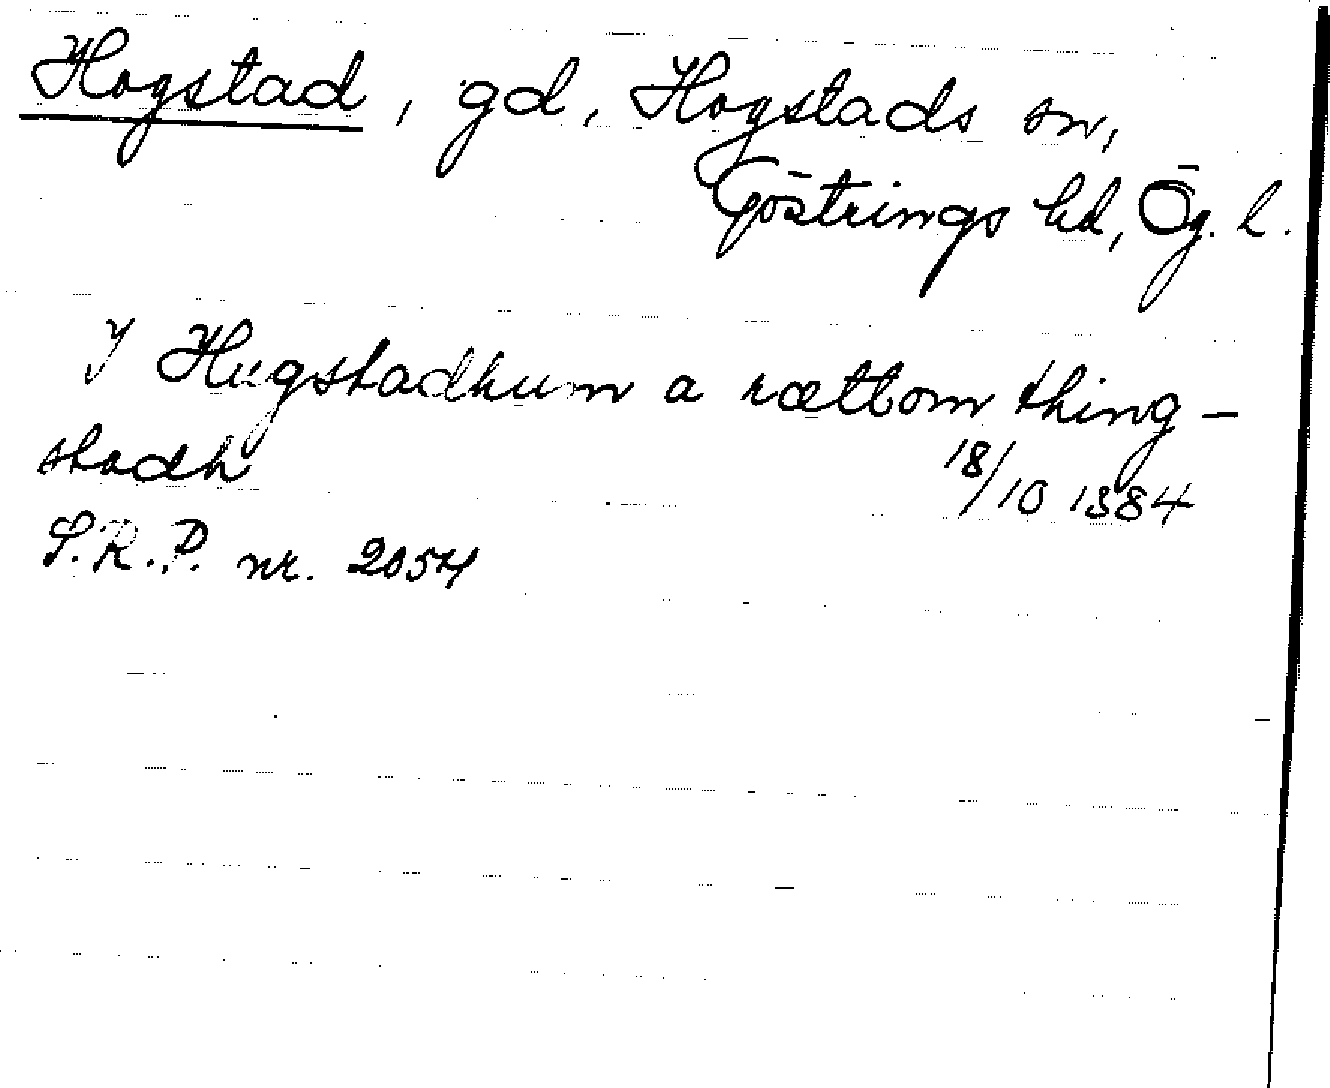 Hogstad, gd, Hogstads sn,
Göstrings hd, Ög. l.
I Hugstadhum a rættom thing-
stadh 18/10 1384
S.R.P. nr. 2054